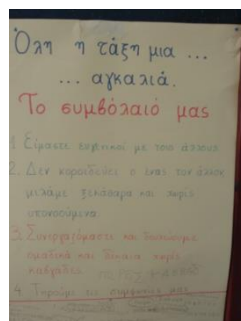 Όλη η τάξη μια ...
... αγκαλιά.
Το συμβόλαιό μας
1. Είμαστε ευγενικοί με τους άλλους
2. Δεν κοροϊδεύει ο ένας τον άλλον
μιλάμε ξεκάθαρα και χωρίς
υπονοούμενα
3. Συνεργαζόμαστε και
ομαδικά και δίκαια χωρίς
καβγάδες.
4. Τηρούμε τις συμφωνίες μας